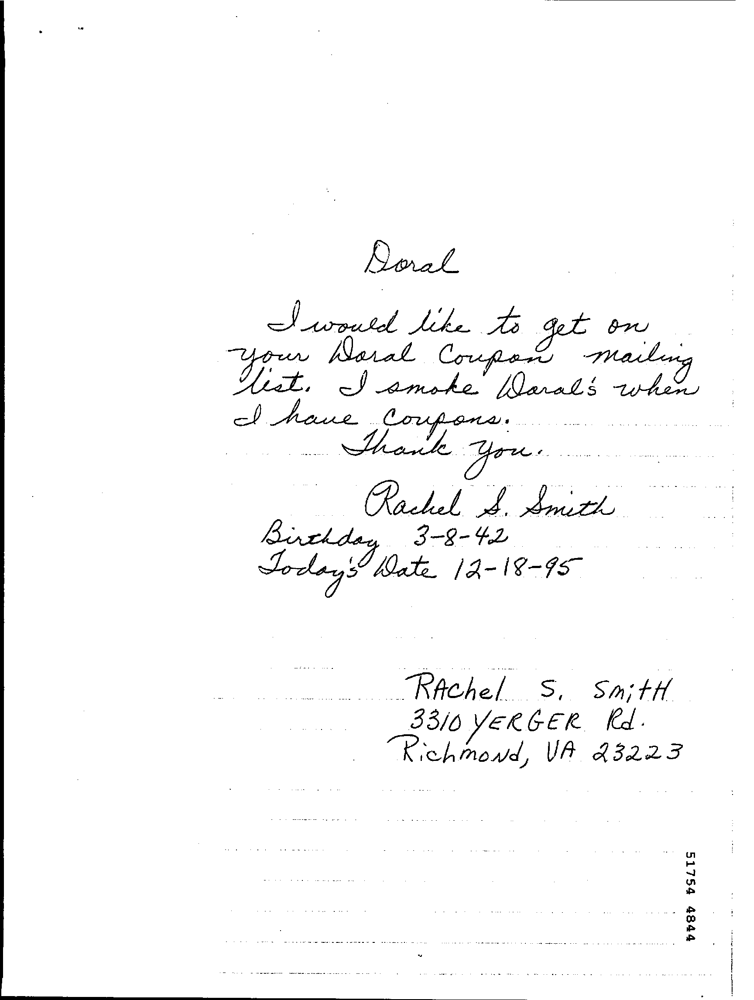 Doral
I would like to get on
your Doral Coupon mailing
list. I smoke Doral's when
I have coupons.
Thank you.
Rachel S. Smith
Birthday 3-8-42
Today's Date 12-18-95
RAchel S. SmitH
3310 YERGER Rd.
RichmoNd, VA 23223
51754 4844